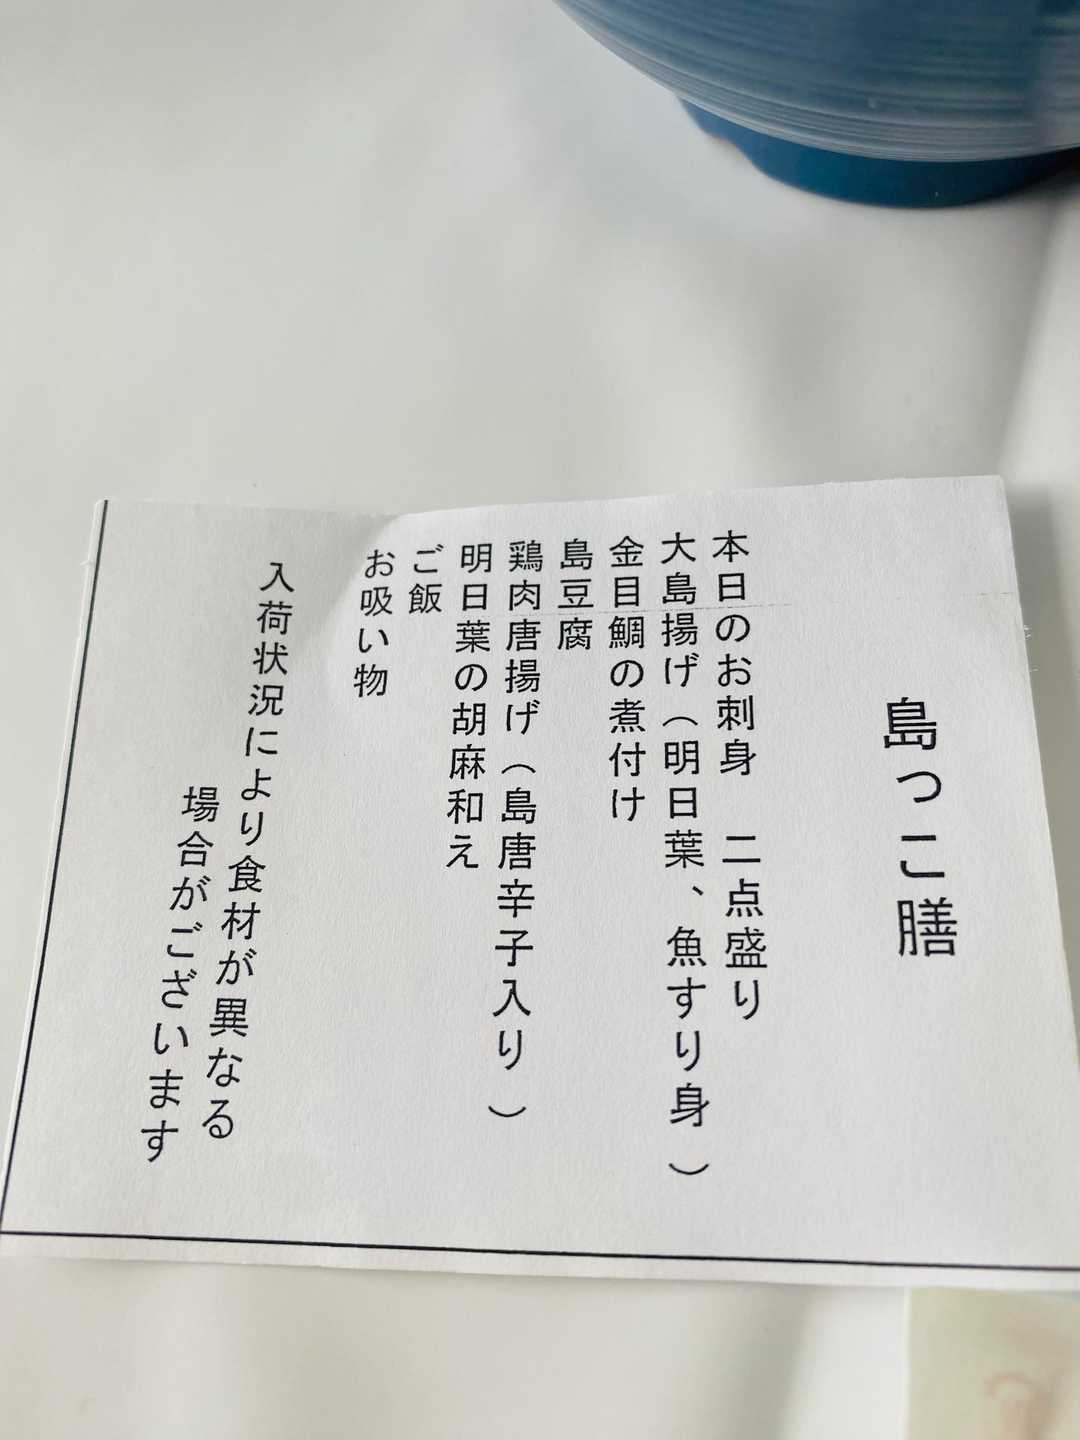 島っこ膳
本日のお刺身　二点盛り
大島揚げ（明日葉、魚すり身）
金目鯛の煮付け
島豆腐
鶏肉唐揚げ（島唐辛子入り）
明日葉の胡麻和え
ご飯
お吸い物
入荷状況により食材が異なる
場合がございます